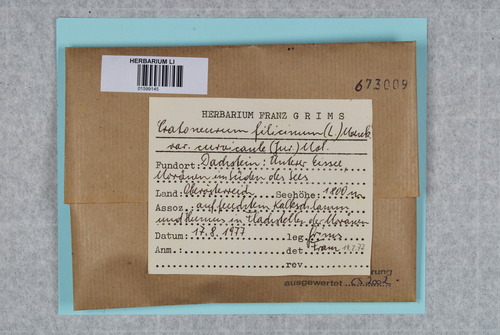 HERBARIUM LI
01599145
673009
HERBARIUM FRANZ GRIMS
Cratoneurum filicinum (L.) Moenk
var. curvicaule (Jur.) Mol.
Fundort: Dachstein: Unterer Eissee,
Moränen im Süden des Sees
Land: Oberösterreich Seehöhe: 1800 m
Assoz. auf feuchtem Kalkschlamm
und Humus in Flachstellen der Moränen
Datum: 17.8.1977 leg. Grims
Anm. det. Grims
rev.
ausgewertet CS 2002